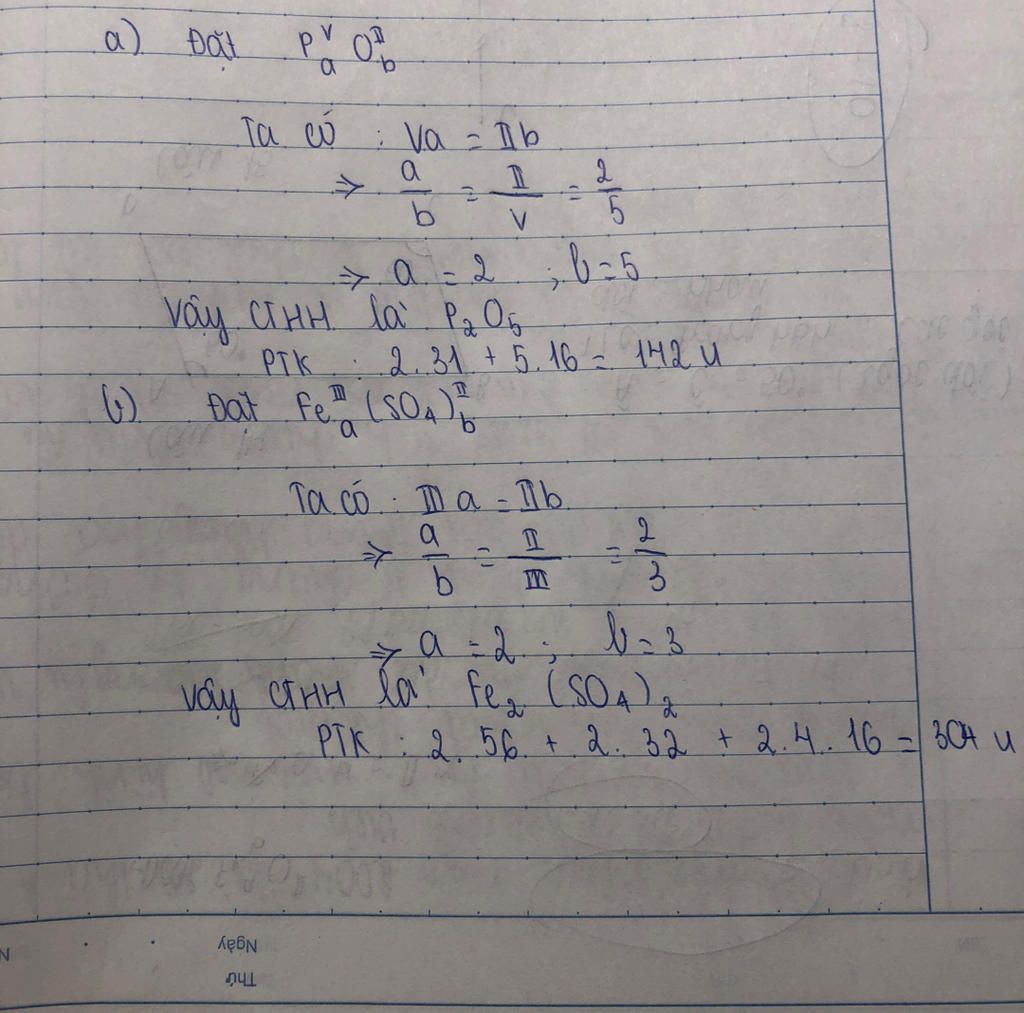 a) Đặt PᵛₐOᴵᴵb
Ta có : Va = IIb
⇒ a/b = II/V = 2/5
⇒ a = 2 ; b = 5
Vậy CTHH là P₂O₅
PTK : 2.31 + 5.16 = 142 u
b) Đặt Feᴵᴵᴵₐ(SO₄)ᴵᴵb
Ta có : III a = IIb
⇒ a/b = II/III = 2/3
⇒ a = 2 ; b = 3
Vậy CTHH là Fe₂(SO₄)₂
PTK : 2.56 + 2.32 + 2.4.16 = 304 u
Ngày
Thứ